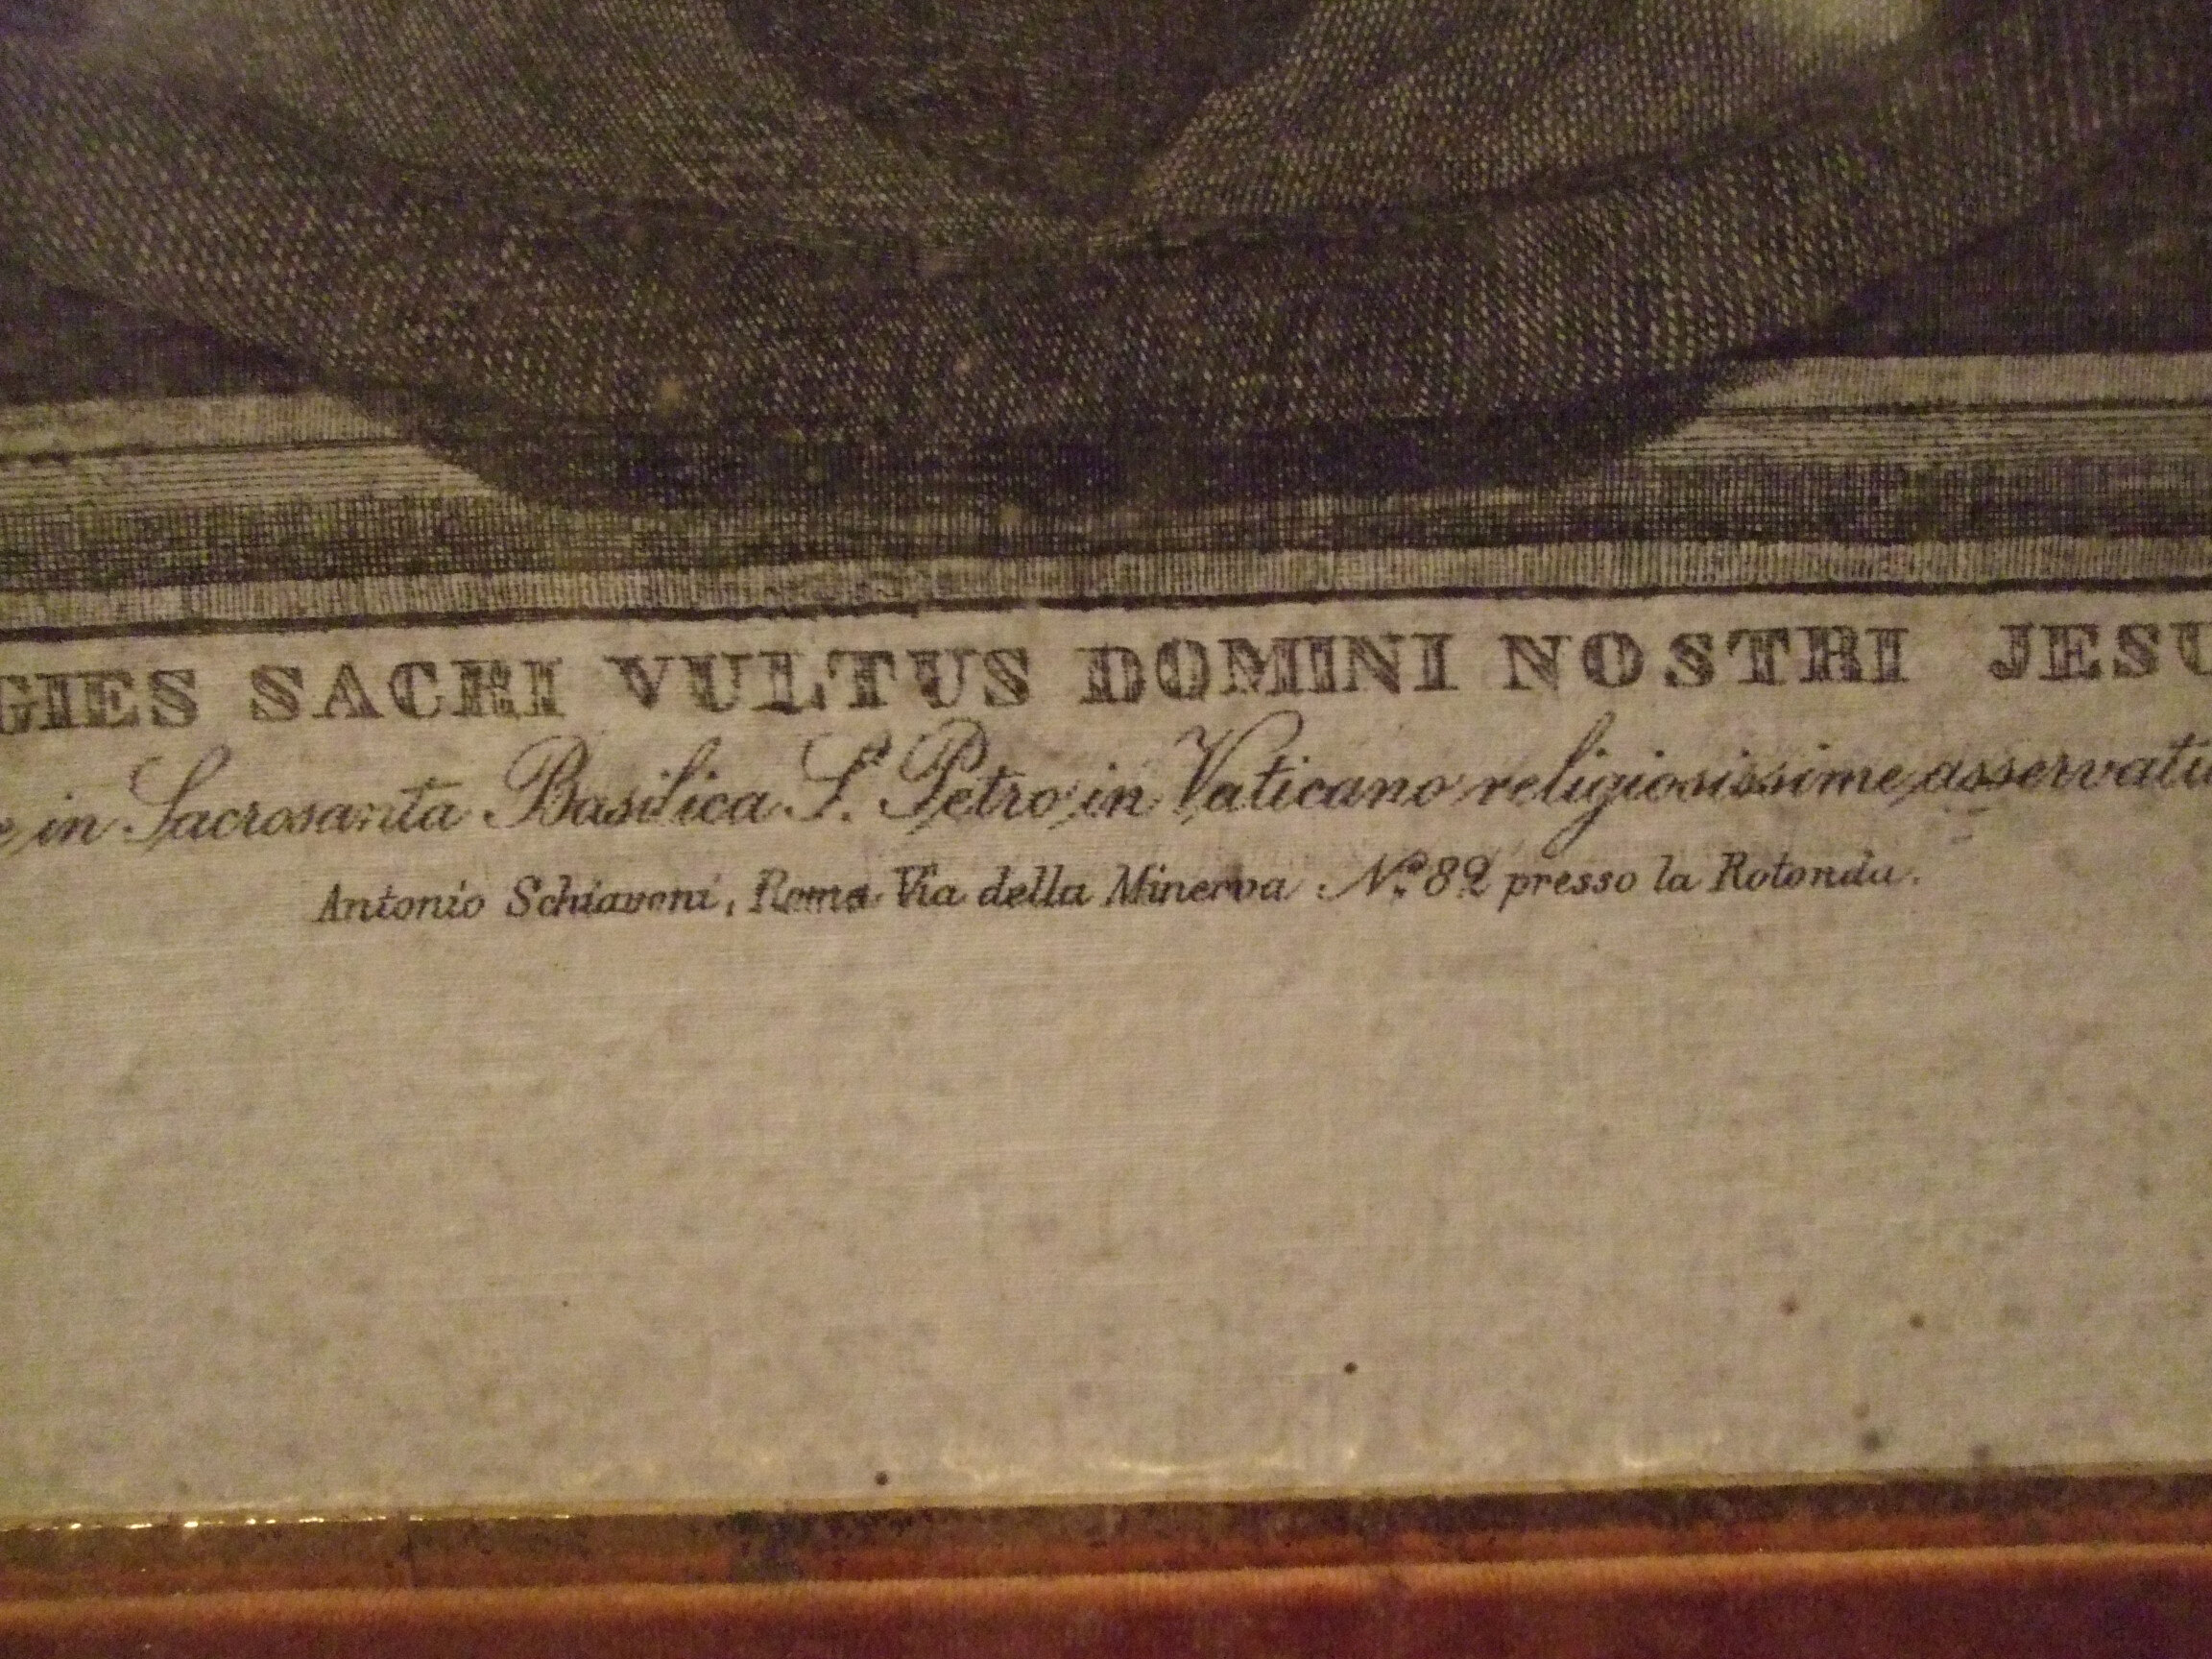 GIES SACRI VULTUS DOMINI NOSTRI JESU
e in Sacrosanta Basilica S.ᵗⁱ Petro in Vaticano religiosissime asservati
Antonio Schiavoni, Roma Via della Minerva Nº 82 presso la Rotonda.